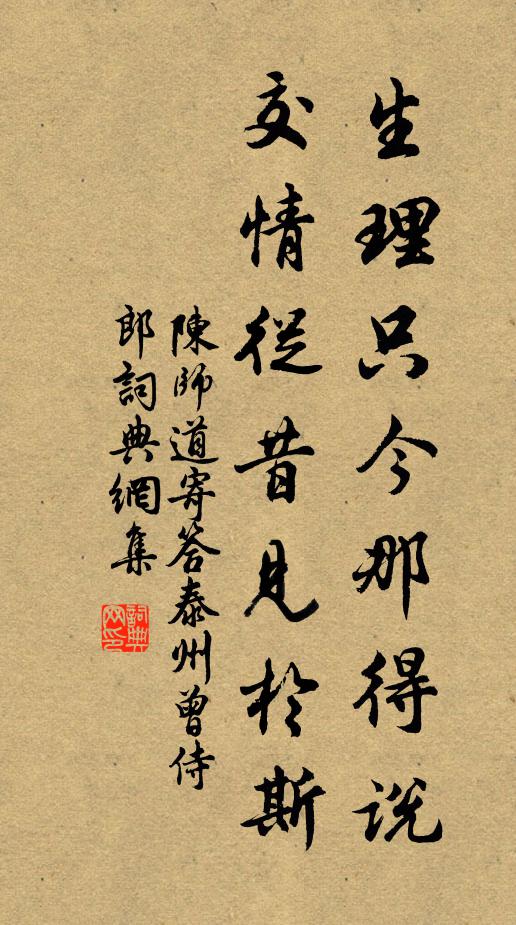 生理只今那得説
交情從昔見於斯
陳師道寄答泰州曾侍
郎詞典網集
詞典
网印